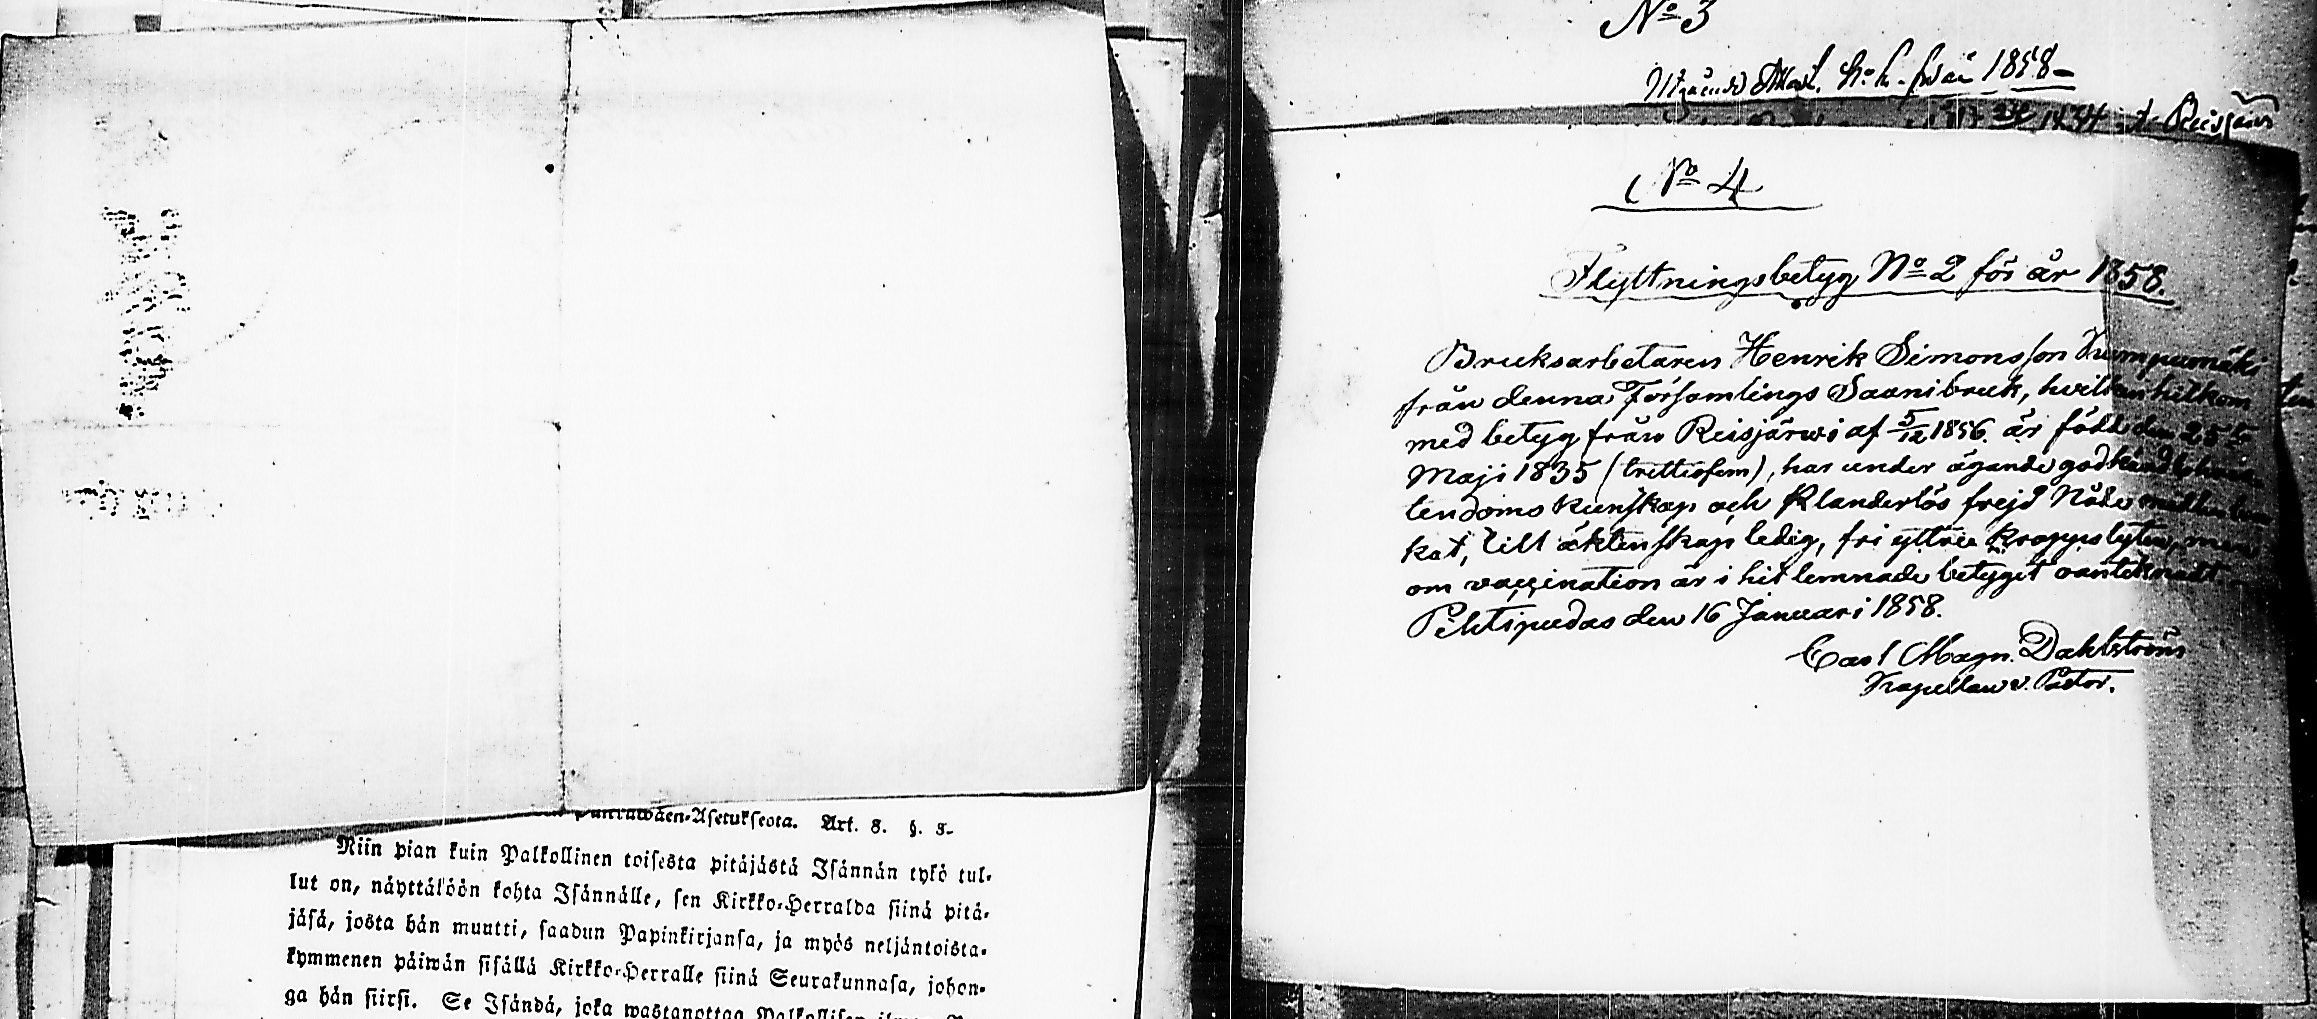 Asetukseota. Art. 8. §. 3.
Niin pian kuin Palkollinen toisesta pitäjästä Isännän tykö tul-
lut on, näyttälöön kohta Isännälle, sen Kirkko-Herralda siinä pitä-
jäsä, josta hän muutti, saadun Papinkirjansa, ja myös neljäntoista-
kymmenen päiwän sisällä Kirkko-Herralle siinä Seurakunnasa, johon-
ga hän siirsi. Se Isändä, joka wastanottaa
No 3
1858
No 4
Flyttningsbetyg No 2 för år 1858.
Bruksarbetaren Henrik Simonsson Kumpumäki
från denna Församlings Saanibruk, hvilken hitkom
med betyg från Reisjärwi af 5/12 1856. är född den 25
Maji 1835 (trettiofem), har under ägande godkänd
tendoms kunskap och klanderlös frejd
kat, till äktenskap ledig, fri yttre kroppslyten, men
om vaccination är i hit lemnade betyget oantecknadt
Pihtipudas den 16 Januari 1858.
Carl Magn. Dahlström
Kapellan v. Pastor.